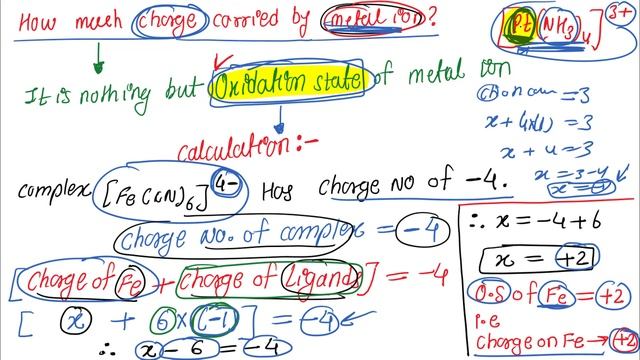 How much charge carried by metal ion?
It is nothing but Oxidation state of metal ion
calculation:-
complex [Fe(CN)6]4- Has charge NO of -4.
charge No. of complex = -4
[charge of Fe + charge of Ligands] = -4
[ x + 6×(-1)] = -4
∴ x - 6 = -4
[Pt(NH3)4]3+
= 3
= 3
x + 4 = 3
x = 3-4
∴ x = -4 + 6
x = +2
O.S of Fe = +2
i.e
charge on Fe → +2